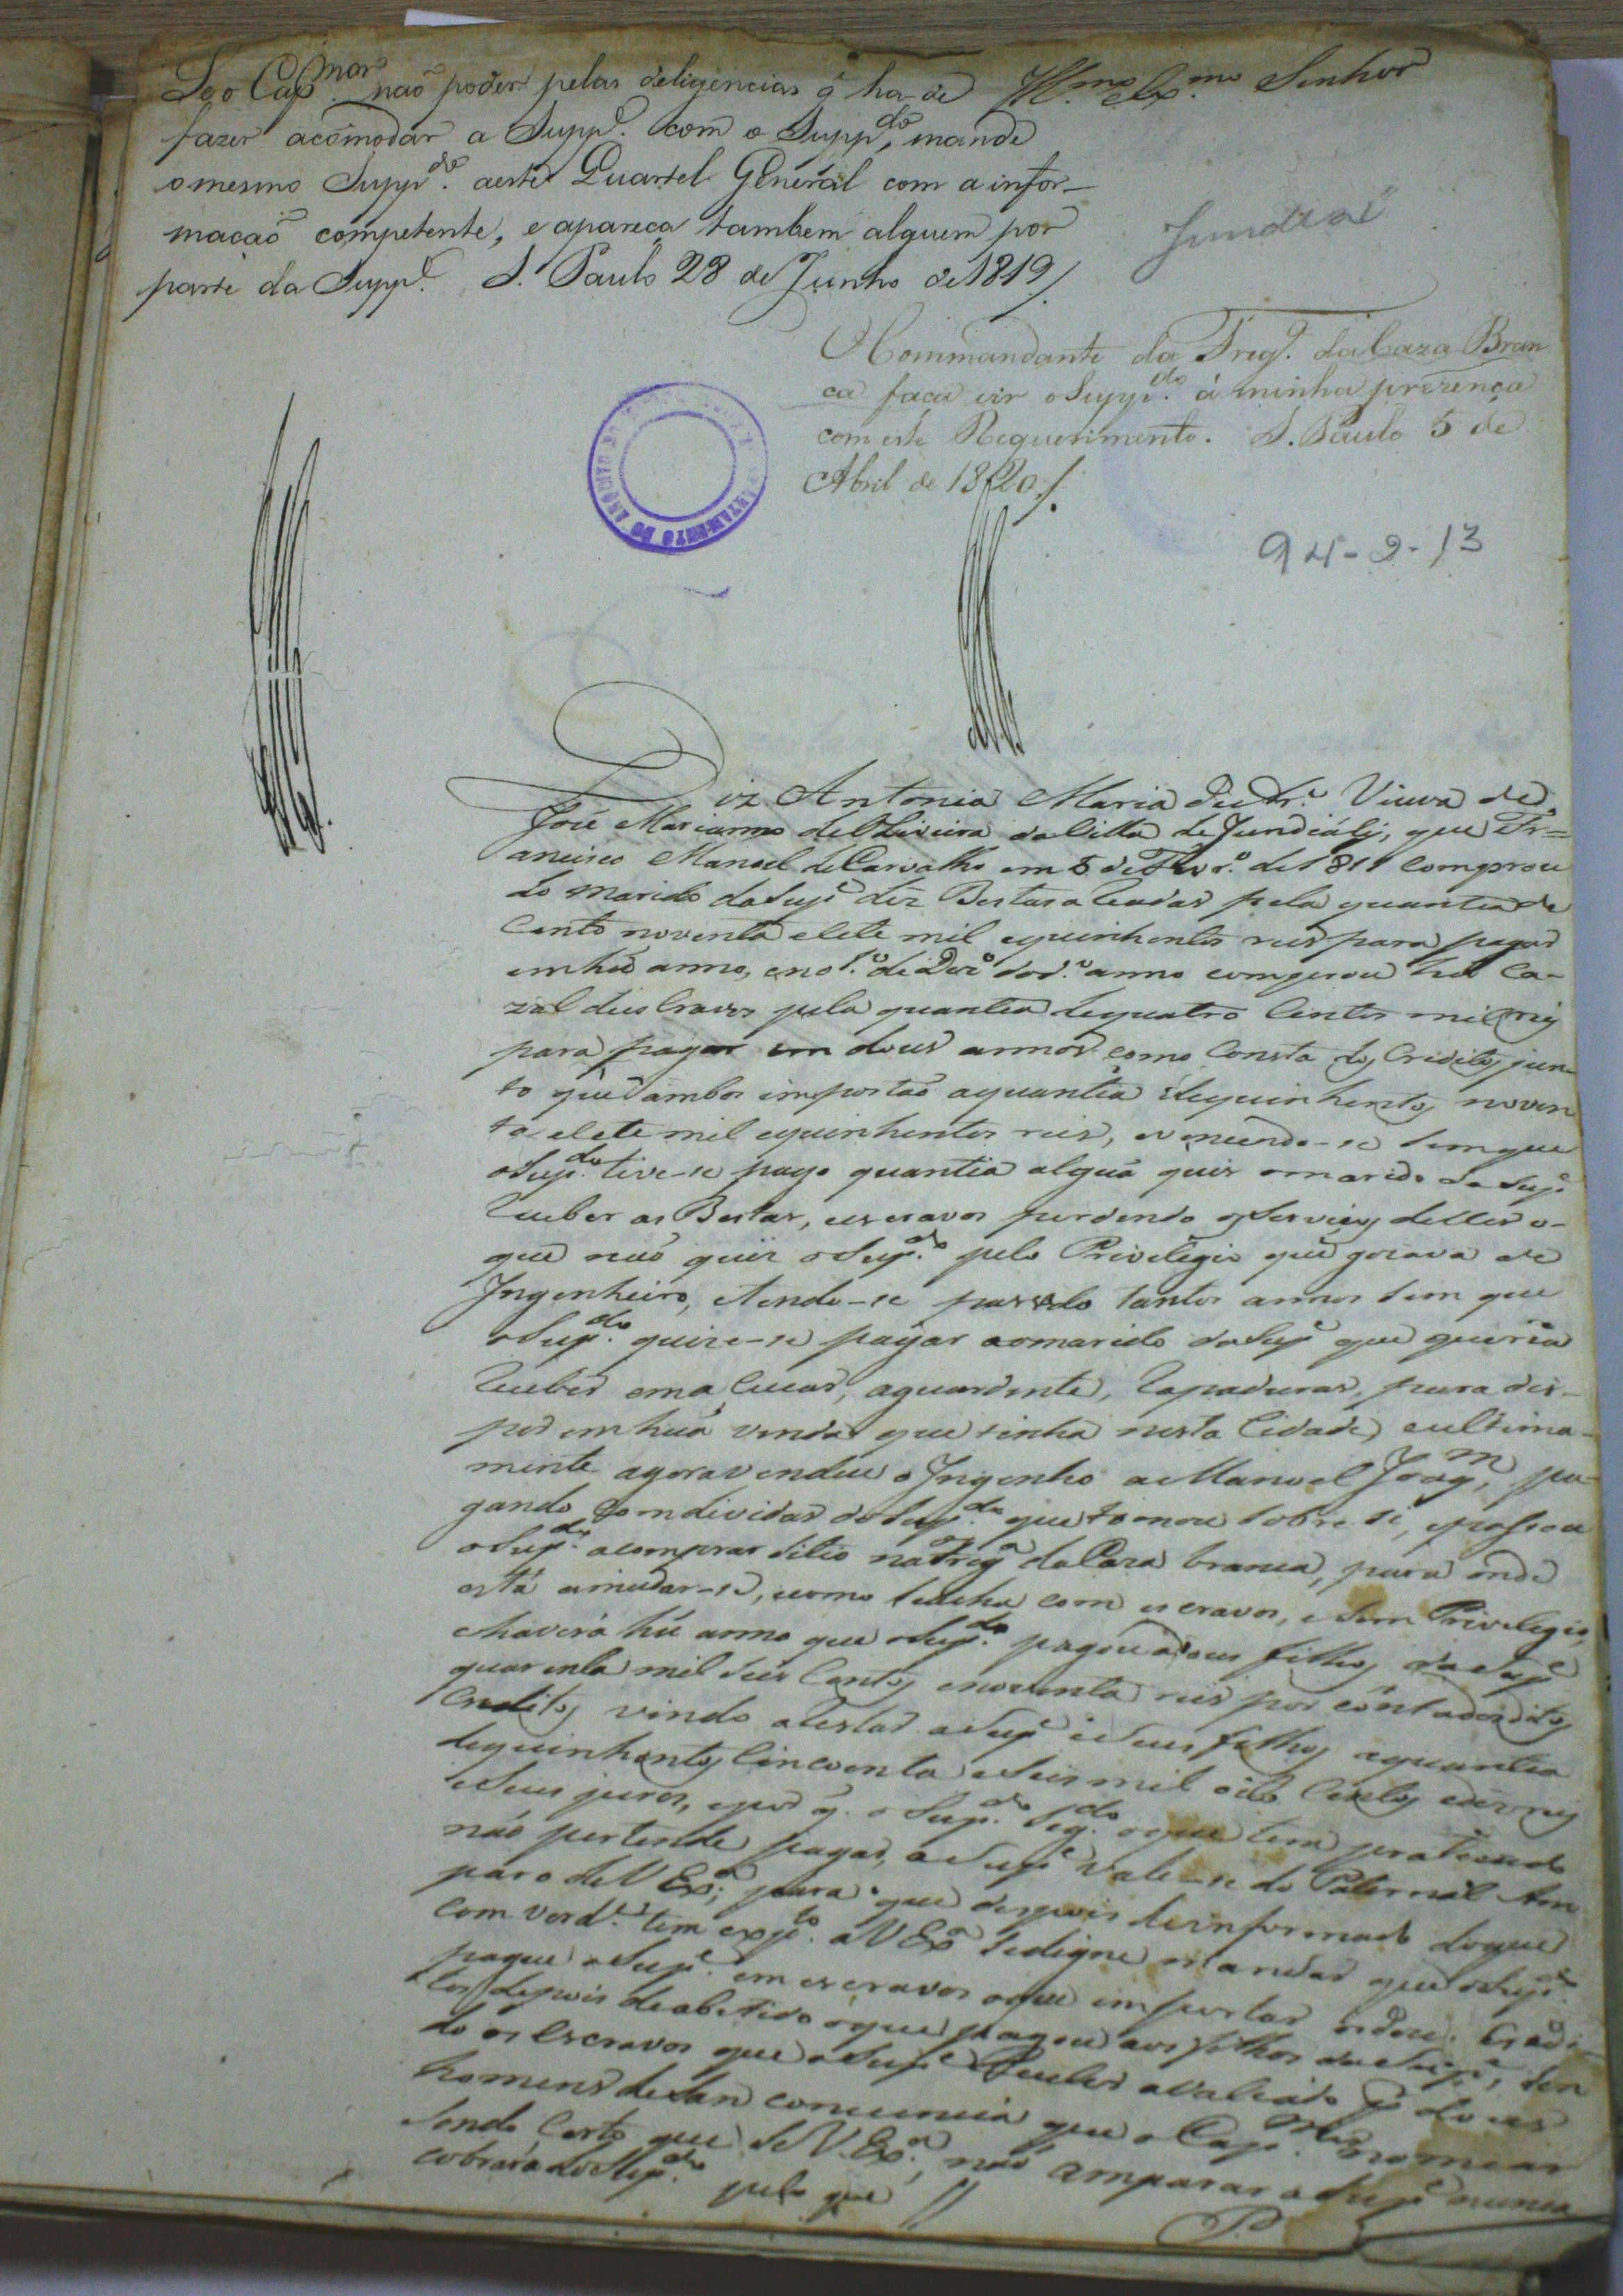 Se o Cap.mor não poder pelas deligencias q̃ ha de
fazer acomodar a Supp.e com o Supp.do, mande
o mesmo Supp.do a este Quartel General com a infor-
mação competente, e apareça tambem alguem por
parte da Supp.e S. Paulo 28 de Junho de 1819
Ill.mo e Ex.mo Senhor
Jundiaí
O Commandante da Freg.a da Caza Bran
ca faça vir o Supp.do á minha prezença
com este Requerimento. S. Paulo 5 de
Abril de 1820
94-2-13
Diz Antonia Maria Viuva de
José Marianno de Oliveira da Villa de Jundiahy, que Fr=
ancisco Manoel de Carvalho em 8 de Fevr.o de 1811 comprou
do marido da Sup.e dez Bestas a Leadas pela quantia de
Cento noventa e sete mil e quinhentos reis para pagar
em hũ anno, e no 1.o de Dez.o do d.o anno comprou hũ ca-
zal de escravos pela quantia de quatro Centos mil reis
para pagar em dous annos como Consta dos Creditos jun
to que ambos importaõ a quantia de quinhentos noven
ta e sete mil e quinhentos reis, e vencendo-se sem que
o Sup.do tive-se pago quantia algũa quis o marido da Sup.e
receber as Bestas, e escravos perdendo os serviços delles o-
que naõ quis o Sup.do pelo Privilegio que gozava de
Ingenheiro, e tendo-se passado tantos annos sem que
o Sup.do quize-se pagar ao marido da Sup.e que queria
receber em a sucar, aguardente, rapaduras, para dis-
por em hũa venda que tinha nesta Cidade, e ultima-
mente agora vendeu o Ingenho a Manoel Joaq.m, pa-
gando com dividas do Sup.do que tomou sobre si, e passou
o Sup.do a comprar sitio na Freg.a da Caza branca, para onde
está a mudar-se, e como se acha com escravos, e sem Privilegio,
e haverá hũ anno que o Sup.do pagou a dous filhos da Sup.e
quarenta mil seis Centos e noventa reis por conta dos ditos
Creditos vindo a restar a Sup.e e seus filhos a quantia
de quinhentos Cincoenta e seis mil oito Centos e dez reis
e seus juros, e por q̃ o Sup.do seg.do o que tem praticado
não pertende pagar, a Sup.e vale-se do Paternal Am
paro de V Ex.a; para que depois de informado do que
com verd.e tem exp.to a V Ex.a se digne mandar que o Sup.do
pague a Sup.e em escravos o que importar os dous Credi-
tos depois de abatido o que pagou aos filhos da Sup.e, sen
do os Escravos que a Sup.e receber avaliado p.r dous
homens de san conciencia que o Cap.mor nomear
Sendo Certo que se V. Ex.a naõ amparar a Sup.e nunca
cobrará do Sup.do pelo que //
P.